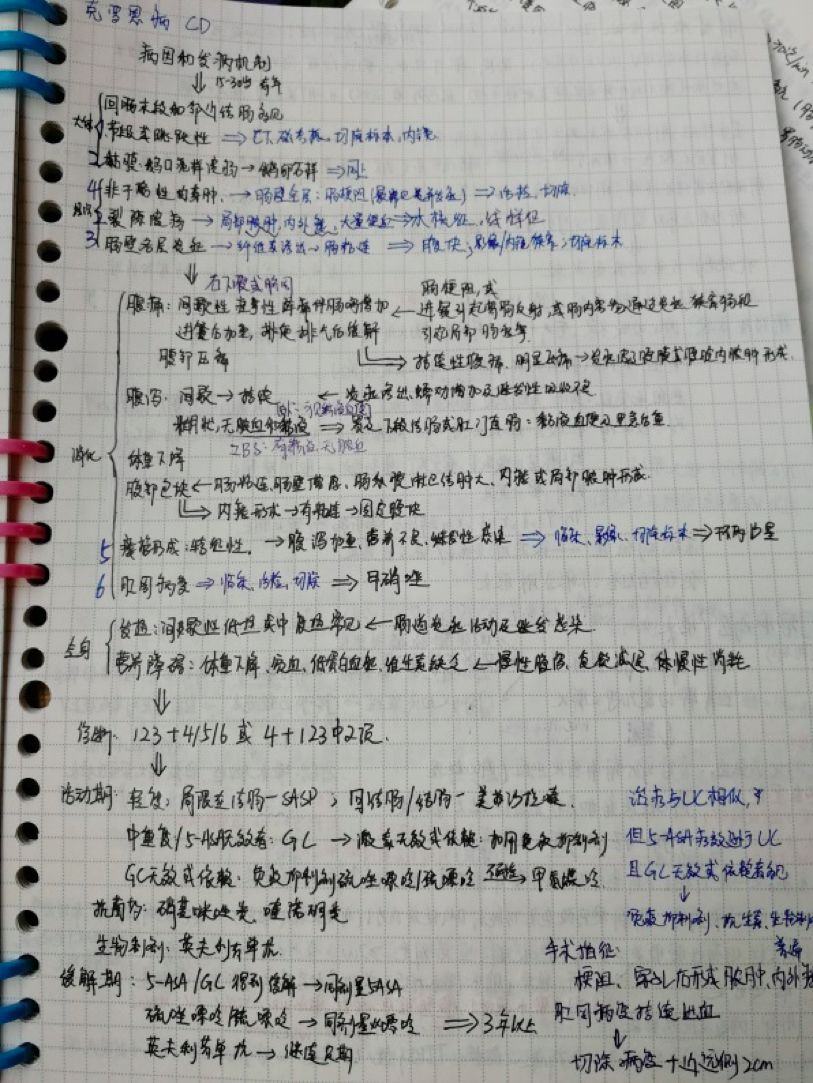 克罗恩病 CD
病因和发病机制
⇓ 15-30岁 青年
大体 回肠末段和邻近结肠多见
1 节段或跳跃性 ⇒ 切除标本、内镜
2 粘膜: 溃疡 → 鹅卵石样 ⇒ 同上
4 非干酪性肉芽肿 → 肠壁全层: 肠梗阻(最常见并发症) ⇒ 活检、切除
裂隙溃疡 → 局部脓肿、内外瘘、大量便血
3 肠壁全层炎症 → 纤维素渗出 → 肠粘连 ⇒ 腹块; 影像/内镜狭窄; 切除标本
⇓ 右下腹或脐周
腹痛: 间歇性 痉挛性阵痛伴肠鸣增加 ← 肠梗阻,或
进餐后加重, 排便排气后缓解 进餐引起胃肠反射,或肠内容物通过炎症 狭窄肠段
引起局部肠痉挛
腹部压痛 → 持续性腹痛、明显压痛 → 炎症波及腹膜或腹腔内脓肿形成
消化 腹泻: 间歇 → 持续 ← 炎症渗出、蠕动增加及继发性吸收不良
糊状,无脓血和黏液 ⇒ 累及下段结肠或肛门直肠: 黏液血便及里急后重
IBS: 有黏液,无脓血
体重下降
腹部包块 ← 肠粘连、肠壁增厚、肠系膜淋巴结肿大、内瘘或局部脓肿形成
→ 内瘘形成 → 有粘连 → 固定腹块
5 瘘管形成: 特征性. → 腹泻加重、营养不良、继发性感染 ⇒ 临床、影像、切除标本
6 肛周病变 ⇒ 临床、活检、切除 ⇒ 甲硝唑
全身 发热: 间歇性低热或中度热常见 ← 肠道炎症活动及继发感染
营养障碍: 体重下降、贫血、低蛋白血症、维生素缺乏 ← 慢性腹泻、食欲减退、慢性消耗
⇓
诊断: 123+4/5/6 或 4+123中2项.
⇓
活动期: 轻度: 局限在结肠—SASP; 回结肠/结肠—美沙拉嗪.
中重度/5-ASA无效者: GC → 激素无效或依赖: 加用免疫抑制剂
GC无效或依赖: 免疫抑制剂硫唑嘌呤/巯嘌呤 → 甲氨蝶呤
抗菌药: 硝基咪唑类, 喹诺酮类
生物制剂: 英夫利昔单抗.
缓解期: 5-ASA/GC得到缓解 → 同剂量5ASA
硫唑嘌呤/巯嘌呤 → 同剂量嘌呤 ⇒ 3年以上
英夫利昔单抗 → 继续定期
治疗与UC相似,
但5-ASA有效逊于UC
且GC无效或依赖者多见
↓
免疫抑制剂、抗生素、生物制剂
普遍
手术指征:
梗阻、穿孔后形成脓肿、内外瘘
肛周病变持续出血
↓
切除病变+近远侧2cm